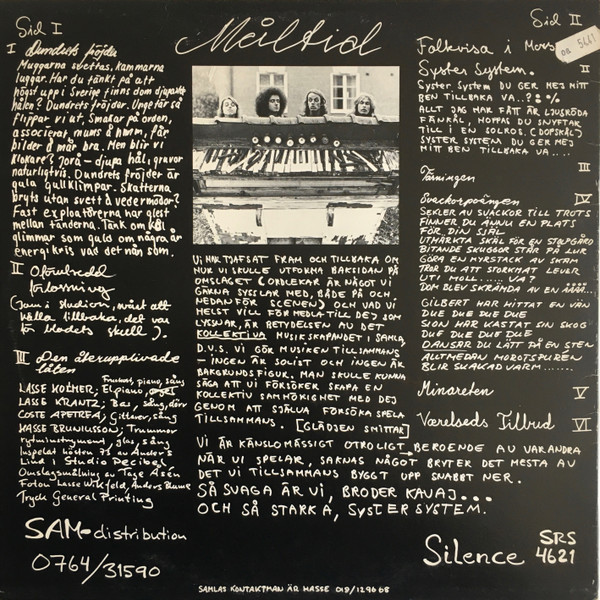 Måltid
Sid I
I Dundrets fröjder
Muggarna svettas, kammarna
luggar. Har du tänkt på att
högst upp i Sverige finns dom djupaste
hålen? Dundrets fröjder. Ungefär så
flippar vi ut, Smakar på orden,
associerar, mums å hmm, får
bilder å mår bra. Men blir vi
klokare? Jorå - djupa hål, gravar
naturligtvis. Dundrets fröjder är
gula gullklimpar. Skatterna
bryts utan svett å vedermödor?
Fast exploatörerna har glest
mellan tänderna. Tänk om kål
glimmar som guld om några år
energikris vad det nån som.
II Oförutsedd
förlossning
(Jam i studion, svårt att
hålla tillbaka, det var
för bladets skull).
III Den återupplivade
låten
LASSE HOLMER; Flygel, piano, sång
Elpiano, orgel
LASSE KRANTZ; Bas, sång, dörr
COSTE APETREA; Gitarr, sång
HASSE BRUNIUSSON; Trummor
rytminstrument, glas, sång
Inspelat hösten 73 av Anders
Lind i Studio Decibel
Omslagsmålning av Tage Åsén
Foton Lasse Wikfeld, Anders Blume
Tryck General Printing
SAM-distribution
0764/31590
VI HAR TJAFSAT FRAM OCH TILLBAKA OM
HUR VI SKULLE UTFORMA BAKSIDAN PÅ
OMSLAGET (ORDLEKAR ÄR NÅGOT VI
GÄRNA SYSSLAR MED, BÅDE PÅ OCH
NEDANFÖR SCENEN) OCH VAD VI
HELST VILL FÖRMEDLA TILL DEJ SOM
LYSSNAR, ÄR BETYDELSEN AV DET
KOLLEKTIVA MUSIKSKAPANDET I SAMLA,
D.V.S. VI GÖR MUSIKEN TILLSAMMANS
- INGEN ÄR SOLIST OCH INGEN ÄR
BAKGRUNDSFIGUR. MAN SKULLE KUNNA
SÄGA ATT VI FÖRSÖKER SKAPA EN
KOLLEKTIV SAMHÖRIGHET MED DEJ
GENOM ATT SJÄLVA FÖRSÖKA SPELA
TILLSAMMANS. [GLÄDJEN SMITTAR]
VI ÄR KÄNSLOMÄSSIGT OTROLIGT BEROENDE AV VARANDRA
NÄR VI SPELAR, SAKNAS NÅGOT BRYTER DET MESTA AV
DET VI TILLSAMMANS BYGGT UPP SNABBT NER.
SÅ SVAGA ÄR VI, BRODER KAVAJ...
OCH SÅ STARKA, SYSTER SYSTEM.
Sid II
Folkvisa i Mors
oa 5641
Syster System. II
SYSTER SYSTEM DU GER MEJ MITT
BEN TILLBAKA VA..?:%
ALLT JAG HAR FÅTT ÄR LJUSRÖDA
FÄNKÅL, HOPPAS DU SNYFTAR
TILL I EN SOLROS. (DOPSKÅL)
SYSTER SYSTEM DU GER MEJ
MITT BEN TILLBAKA VA....
III
Tärningen
Svackorpoängen IV
SEKLER AV SVACKOR TILL TROTS
FINNER DU ÄNNU EN PLATS
FÖR DIN SJÄL
UTMÄRKTA SKÄL FÖR EN STRIPGÅRD
BITANDE SKUGGOR STÅR PÅ LUR
GÖRA EN MYRSTACK AV SKRÄP
TROR DU ATT STORKMAT LEVER
UT I MOLL..... VA?
DOM BLEV SKRÄMDA AV EN ÄÄÄ...
GILBERT HAR HITTAT EN VÄN
DUE DUE DUE DUE
SION HAR KASTAT SIN SKOG
DUE DUE DUE DUE
DANSAR DU LÄTT PÅ EN STEN
ALLTMEDAN MOROTSPUREN
BLIR SKALLAD VARM.......
Minareten V
Værelseds Tilbud VI
Silence SRS
4621
SAMLAS KONTAKTMAN ÄR HASSE 018/129668